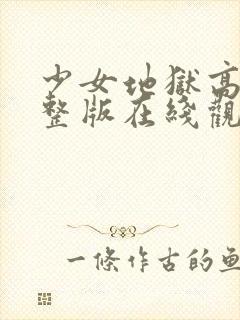 少女地獄高
整版在綫觀
一條作古的魚